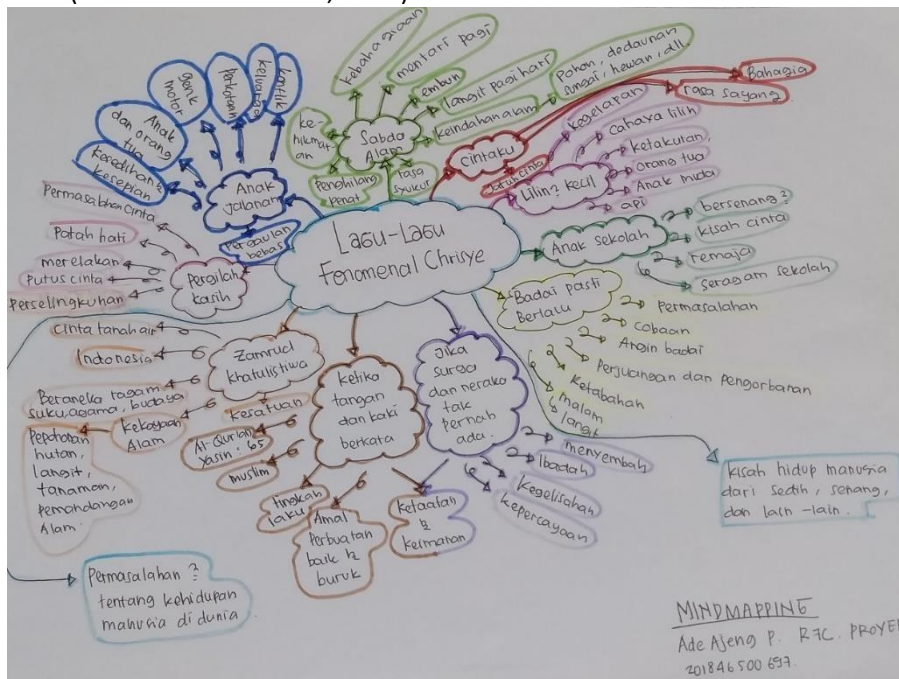 Lagu-Lagu
Fenomenal Chrisye
Anak
Jalanan
kesedihan &
kesepian
Anak
dan orang
tua
genk
motor
Perkotaan
keluarga
konflik
Pergaulan
bebas
Sabda
Alam
ke-
hikmat-
an
Kebahagiaan
mentari pagi
embun
langit pagi hari
keindahan alam
Pohon, dedaunan
sungai, hewan, dll.
Penghilang
penat
rasa
syukur
cintaku
Bahagia
rasa sayang
Jatuh cinta
Lilin2 kecil
kegelapan
cahaya lilin
ketakutan
orang tua
Anak muda
api
Anak sekolah
bersenang2
kisah cinta
remaja
seragam sekolah
Badai pasti
Berlalu
Permasalahan
cobaan
Angin badai
Perjuangan dan pengorbanan
Ketabahan
malam
langit
Jika
surga
dan neraka
tak
pernah
ada.
menyembah
Ibadah
Kegelisahan
kepercayaan
ketika
tangan
dan kaki
berkata
Al-Qur'an
Yasin : 65
muslim
tingkah
laku
Amal
Perbuatan
baik &
buruk
ketaatan
&
keimanan
Zamrud
khatulistiwa
cinta tanah air
Indonesia
Beraneka ragam
suku, agama, budaya
kekayaan
Alam
Pepohonan
hutan,
langit,
tanaman,
pemandangan
Alam.
kesatuan
Pergilah
kasih
Permasalahan cinta
Patah hati
merelakan
Putus cinta
Perselingkuhan
Permasalahan2
tentang kehidupan
manusia di dunia
kisah hidup manusia
dari sedih, senang,
dan lain-lain.
MINDMAPPING
Ade Ajeng P. R7C. PROYE
201846500697.